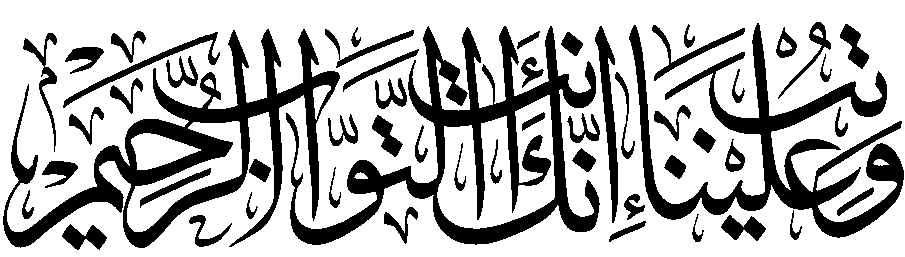 وَتُبْ عَلَيْنَا إِنَّكَ أَنْتَ التَّوَّابُ الرَّحِيمُ